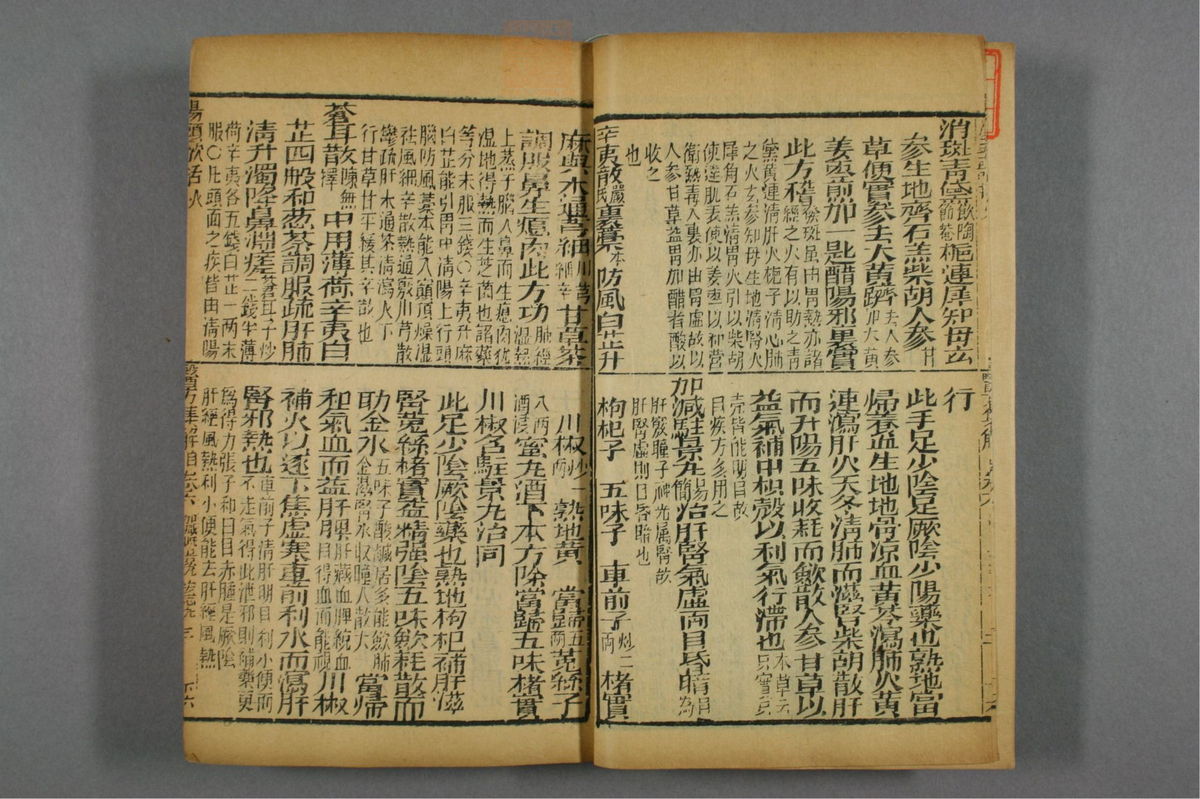 消斑青黛飲陶節菴梔連犀知母玄
參生地齊石羔柴胡人參甘
草便實參去大黃躋去人參加大黃
姜棗煎加一匙醋陽邪裏實
此方稽發斑虽由胃熱亦諸經之火有以助之青
黛黃連清肝火梔子清心肺
之火玄參知母生地清腎火
犀角石羔清胃火引以柴胡
使達肌表使以姜棗以和營
衛熱毒入裏亦由胃虛故以
人參甘草益胃加醋者酸以
收之
也
辛夷散嚴氏裏藁本防風白芷升
行
此手足少陰足厥陰少陽藥也熟地當
歸養血生地地骨凉血黃芩瀉肺火黃
連瀉肝火天冬清肺而滋腎柴胡散肝
而升陽五味收耗而歛散人參甘草以
益氣補中枳殼以利氣行滯也本草云枳實枳
壳皆能明目故
目疾方多用之
加減駐景丸簡易治肝腎氣虛兩目昏暗目為
肝竅瞳子神光属腎故
肝腎虛則目昏暗也
枸杞子 五味子 車前子炒二兩 楮實
麻與木通芎細川芎細辛甘草茶
調服鼻生瘜肉此方功肺經湿熱
上蒸于腦入鼻而生瘜肉犹
湿地得熱而生芝菌也諸藥
等分末服三錢〇辛夷升麻
白芷能引胃中清陽上行頭
腦防風藁本能入巔頂燥湿
祛風細辛散熱通竅川芎散
鬱疏肝木通茶清瀉火下
行甘草甘平緩其辛散也
蒼耳散陳無擇中用薄荷辛夷白
芷四般和葱茶調服疏肝肺
清升濁降鼻淵瘥蒼耳子炒二錢半薄
荷辛夷各五錢白芷一兩末
服〇凡頭面之疾皆由清陽
川椒炒一兩 熟地黃 當歸五兩菟絲子
八兩酒浸蜜丸酒下本方除當歸五味楮實
川椒名駐景丸治同
此足少陰厥陰藥也熟地枸杞補肝滋
腎菟絲楮實益精強陰五味歛耗散而
助金水五味子酸鹹居多能歛肺金滋腎水收瞳人散大當歸
和氣血而益肝脾肝藏血脾統血目得血而能視川椒
補火以逐下焦虛寒車前利水而瀉肝
腎邪熱也車前子清肝明目利小便而不走氣得此泄邪則補藥更
為得力張子和曰目赤腫是厥陰
肝經風熱利小便能去肝經風熱
湯頭歌括